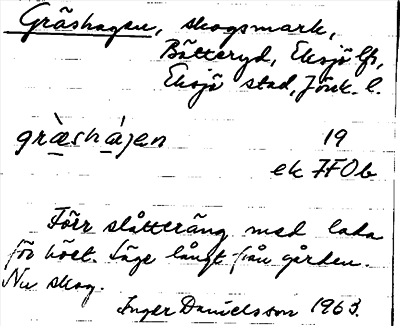 Gräshagen, skogsmark,
Bötteryd, Eksjö lfs,
Eksjö stad, Jönk. l.
græshajen 19
ek 7F0b
Förr slåtteräng med lada
för höet. Låge långt från gården.
Nu skog.
Inger Danielsson 1963.